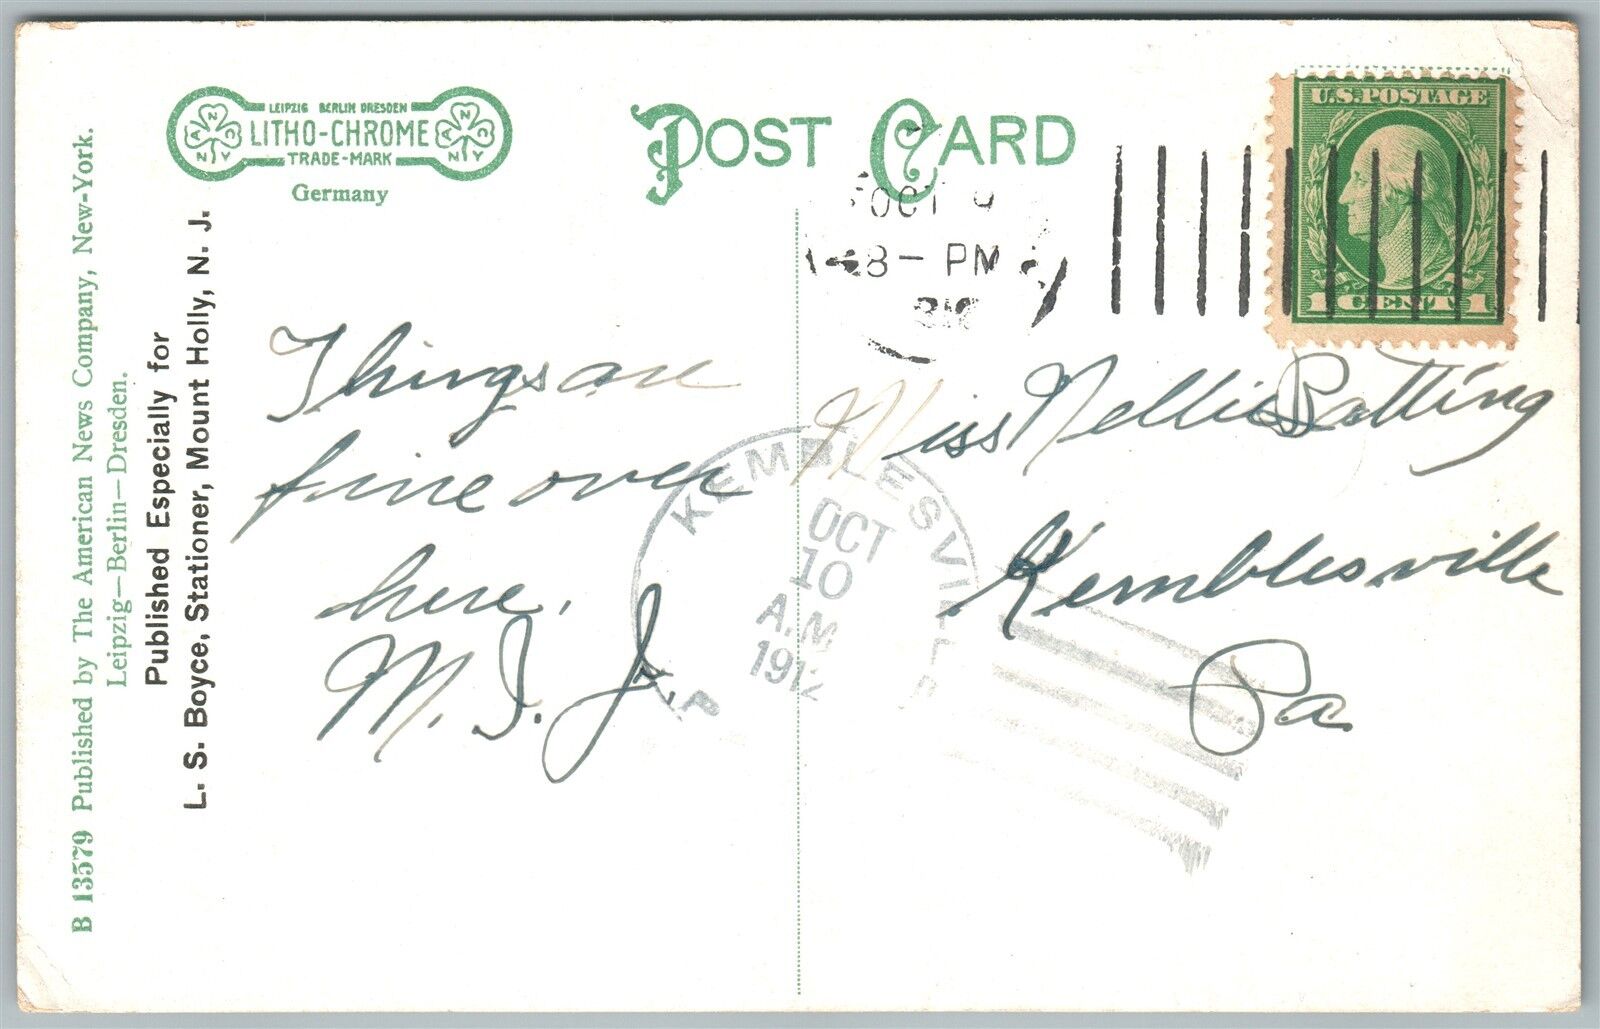 LEIPZIG BERLIN DRESDEN
LITHO-CHROME
TRADE-MARK
ANCNY
ANCNY
Germany
POST CARD
U.S.POSTAGE
1 CENT 1
OCT 9
8 - PM
B 13579 Published by The American News Company, New-York.
Leipzig—Berlin—Dresden.
Published Especially for
L. S. Boyce, Stationer, Mount Holly, N. J.
Things are
fine over
here.
M. I. J.
KEMBLESVILLE
OCT
10
A.M.
1912
Miss Nellie Batting
Kemblesville
Pa.